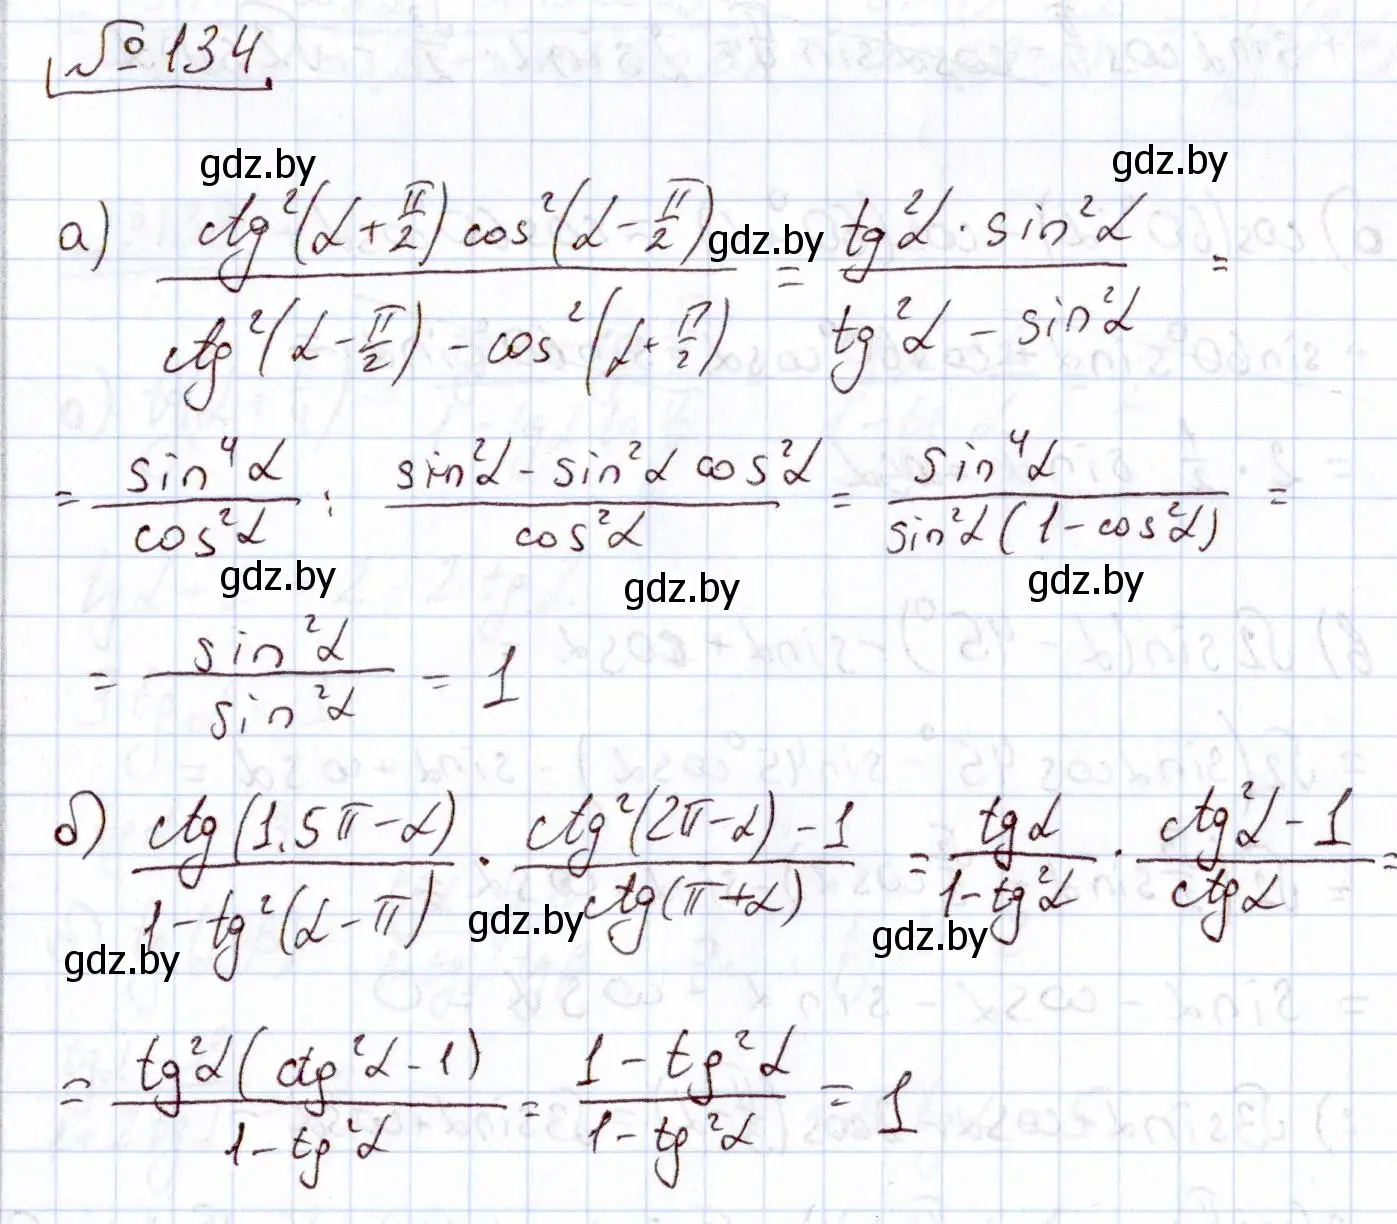 №134.
gdz.by gdz.by
а) ctg²(α+π/2) cos²(α-π/2) / ctg²(α-π/2) - cos²(α+π/2) gdz.by = tg²α · sin²α / tg²α - sin²α =
= sin⁴α / cos²α : sin²α - sin²α cos²α / cos²α = sin⁴α / sin²α(1-cos²α) =
gdz.by gdz.by gdz.by
= sin²α / sin²α = 1
б) ctg(1.5π-α) / 1-tg²(α-π) · ctg²(2π-α)-1 / ctg(π+α) = tgα / 1-tg²α · ctg²α-1 / ctgα =
gdz.by gdz.by gdz.by
= tg²α(ctg²α-1) / 1-tg²α = 1-tg²α / 1-tg²α = 1